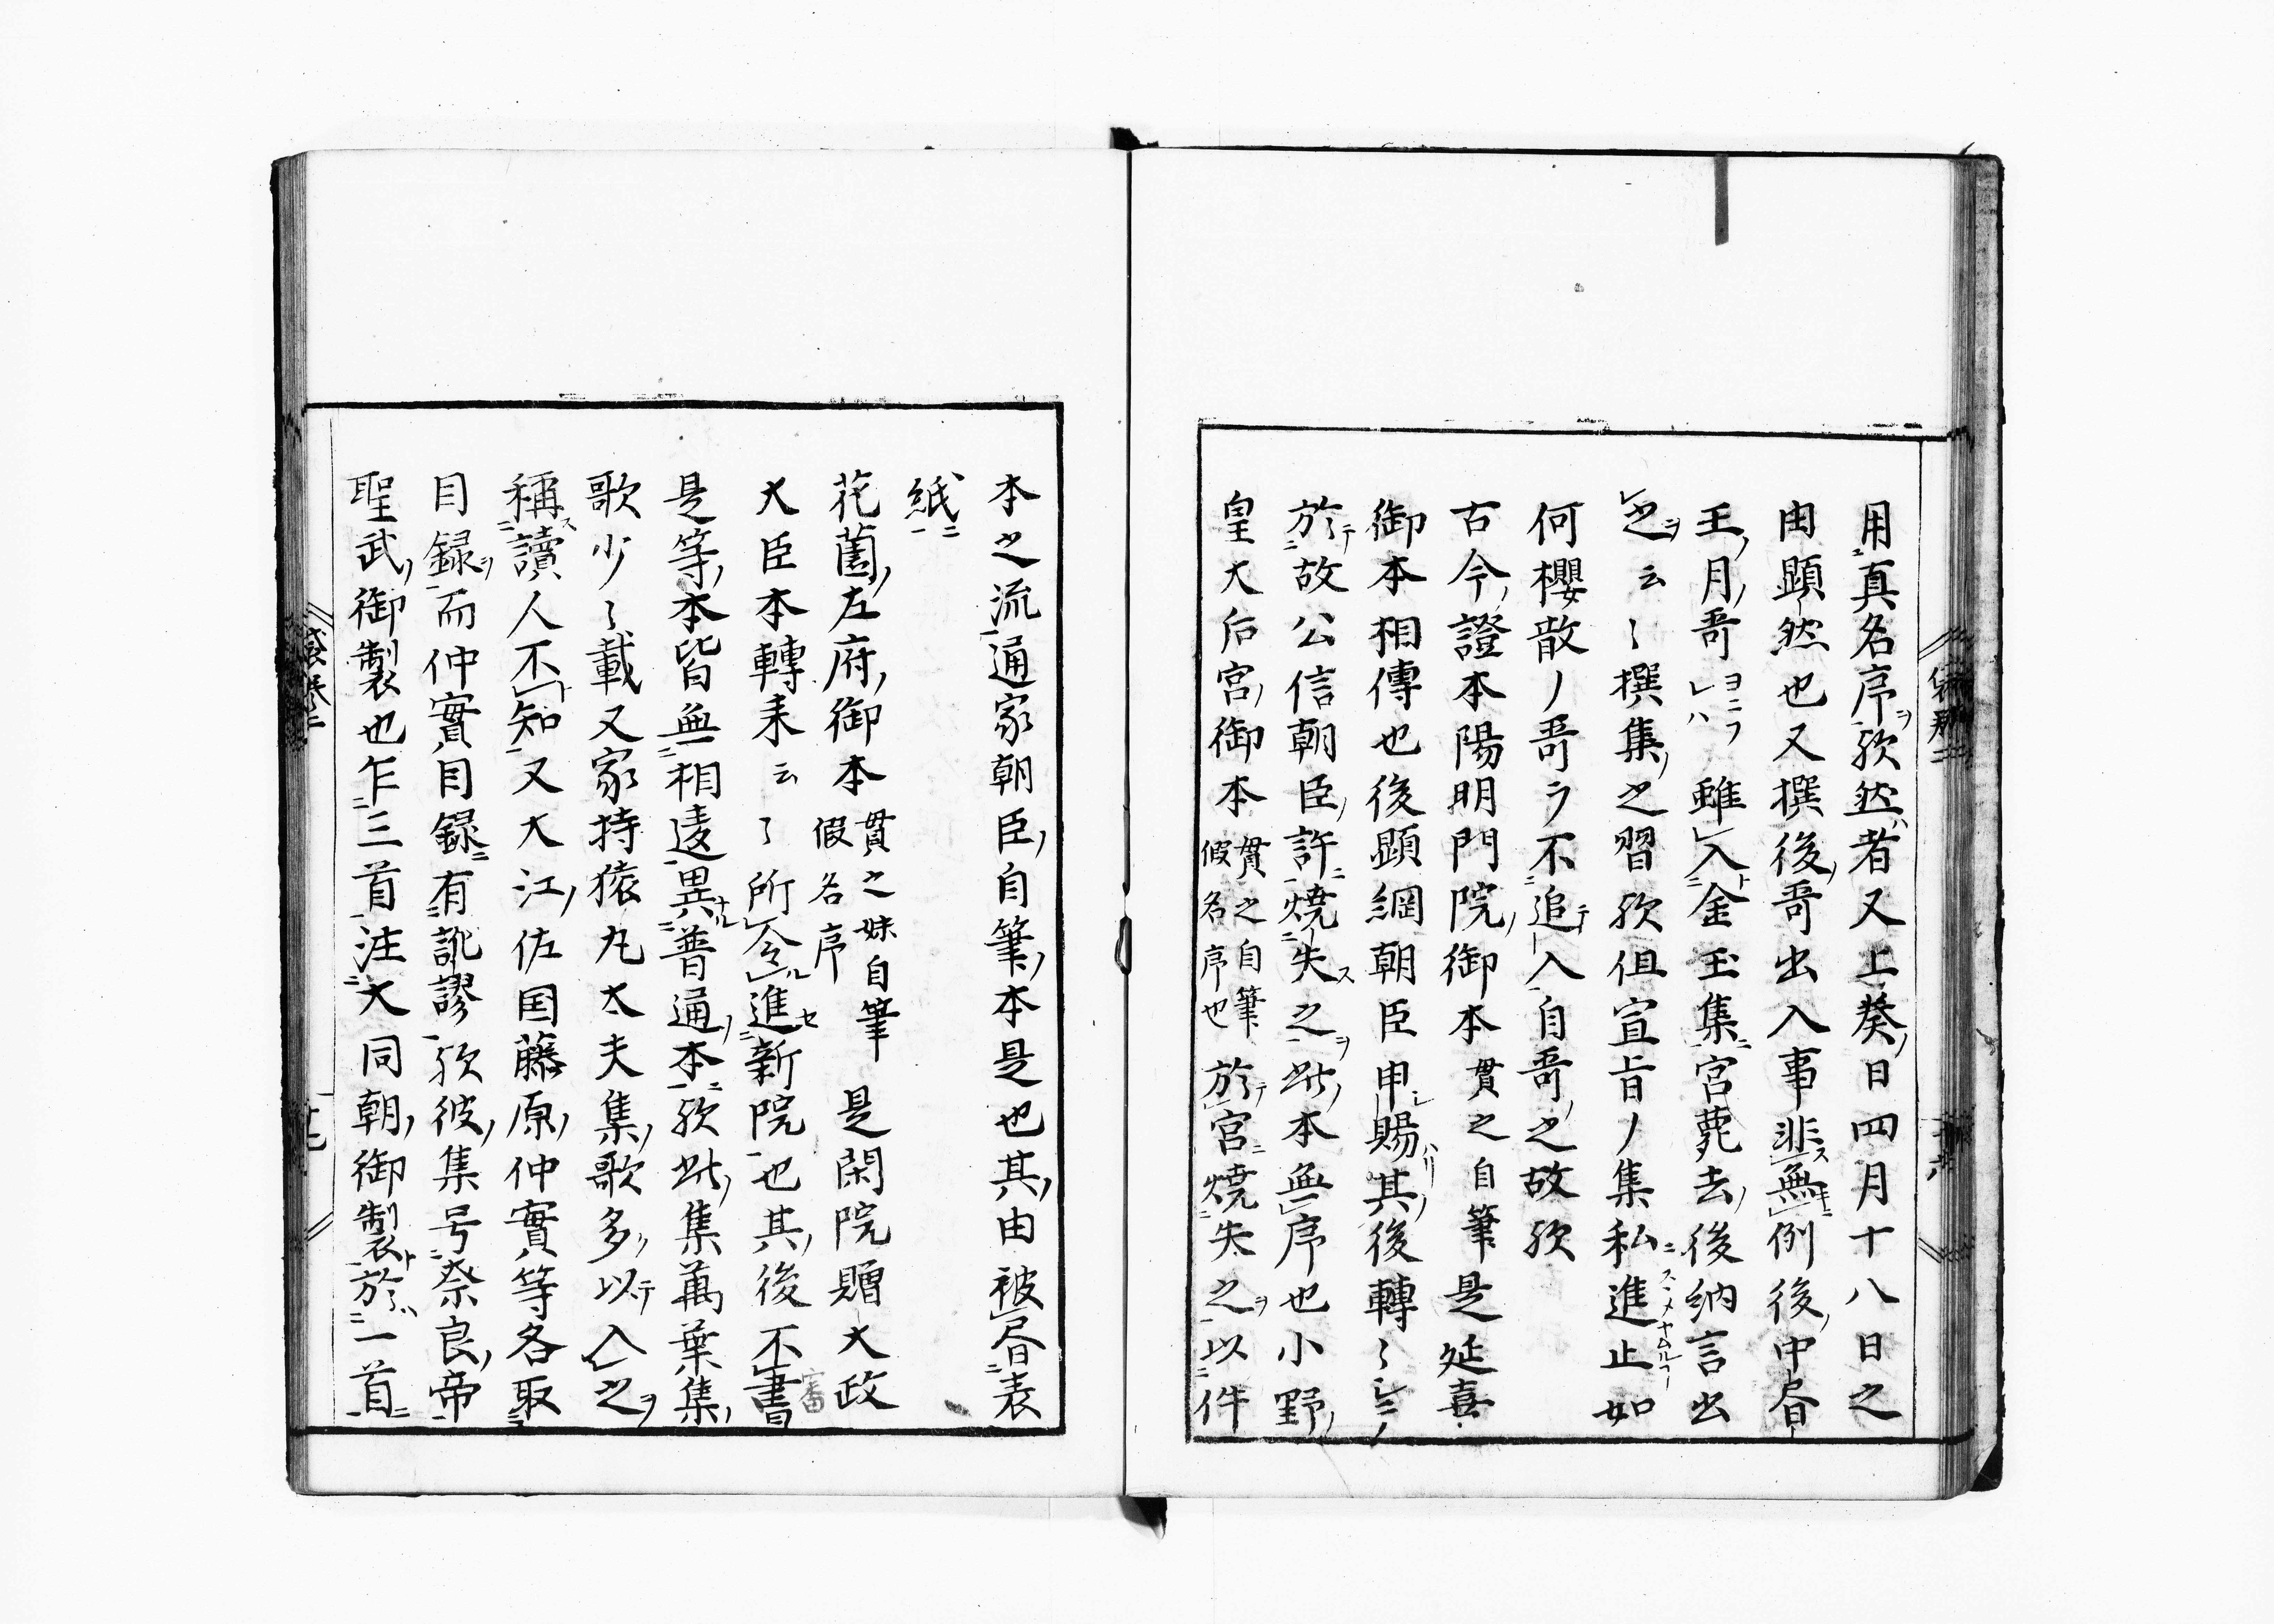 用真名序欤然者又上葵日四月十八日之
由顕然也又撰後哥出入事非無例後中書
王月哥雖入金玉集宮薨去後納言出
之云々撰集之習欤但宣旨ノ集私進止如
何櫻散ノ哥ラ不追入自哥之故欤
古今證本陽明門院御本貫之自筆是延喜
御本相傳也後顕綱朝臣申賜其後轉々シテ
於故公信朝臣許焼失之此本無序也小野
皇大后宮御本貫之自筆假名序也於宮焼失之以件
本之流通家朝臣自筆本是也其由被書表
紙
花薗左府御本貫之妹自筆假名序是閑院贈大政
大臣本轉来云々所令進新院也其後不審
是等本皆無相違異普通本欤此集萬葉集
歌少々載又家持猿丸大夫集歌多以入之
稱讀人不知又大江佐国藤原仲實等各取
目録而仲實目録有訛謬欤彼集号奈良帝
聖武御製也乍三首注大同朝御製於一首